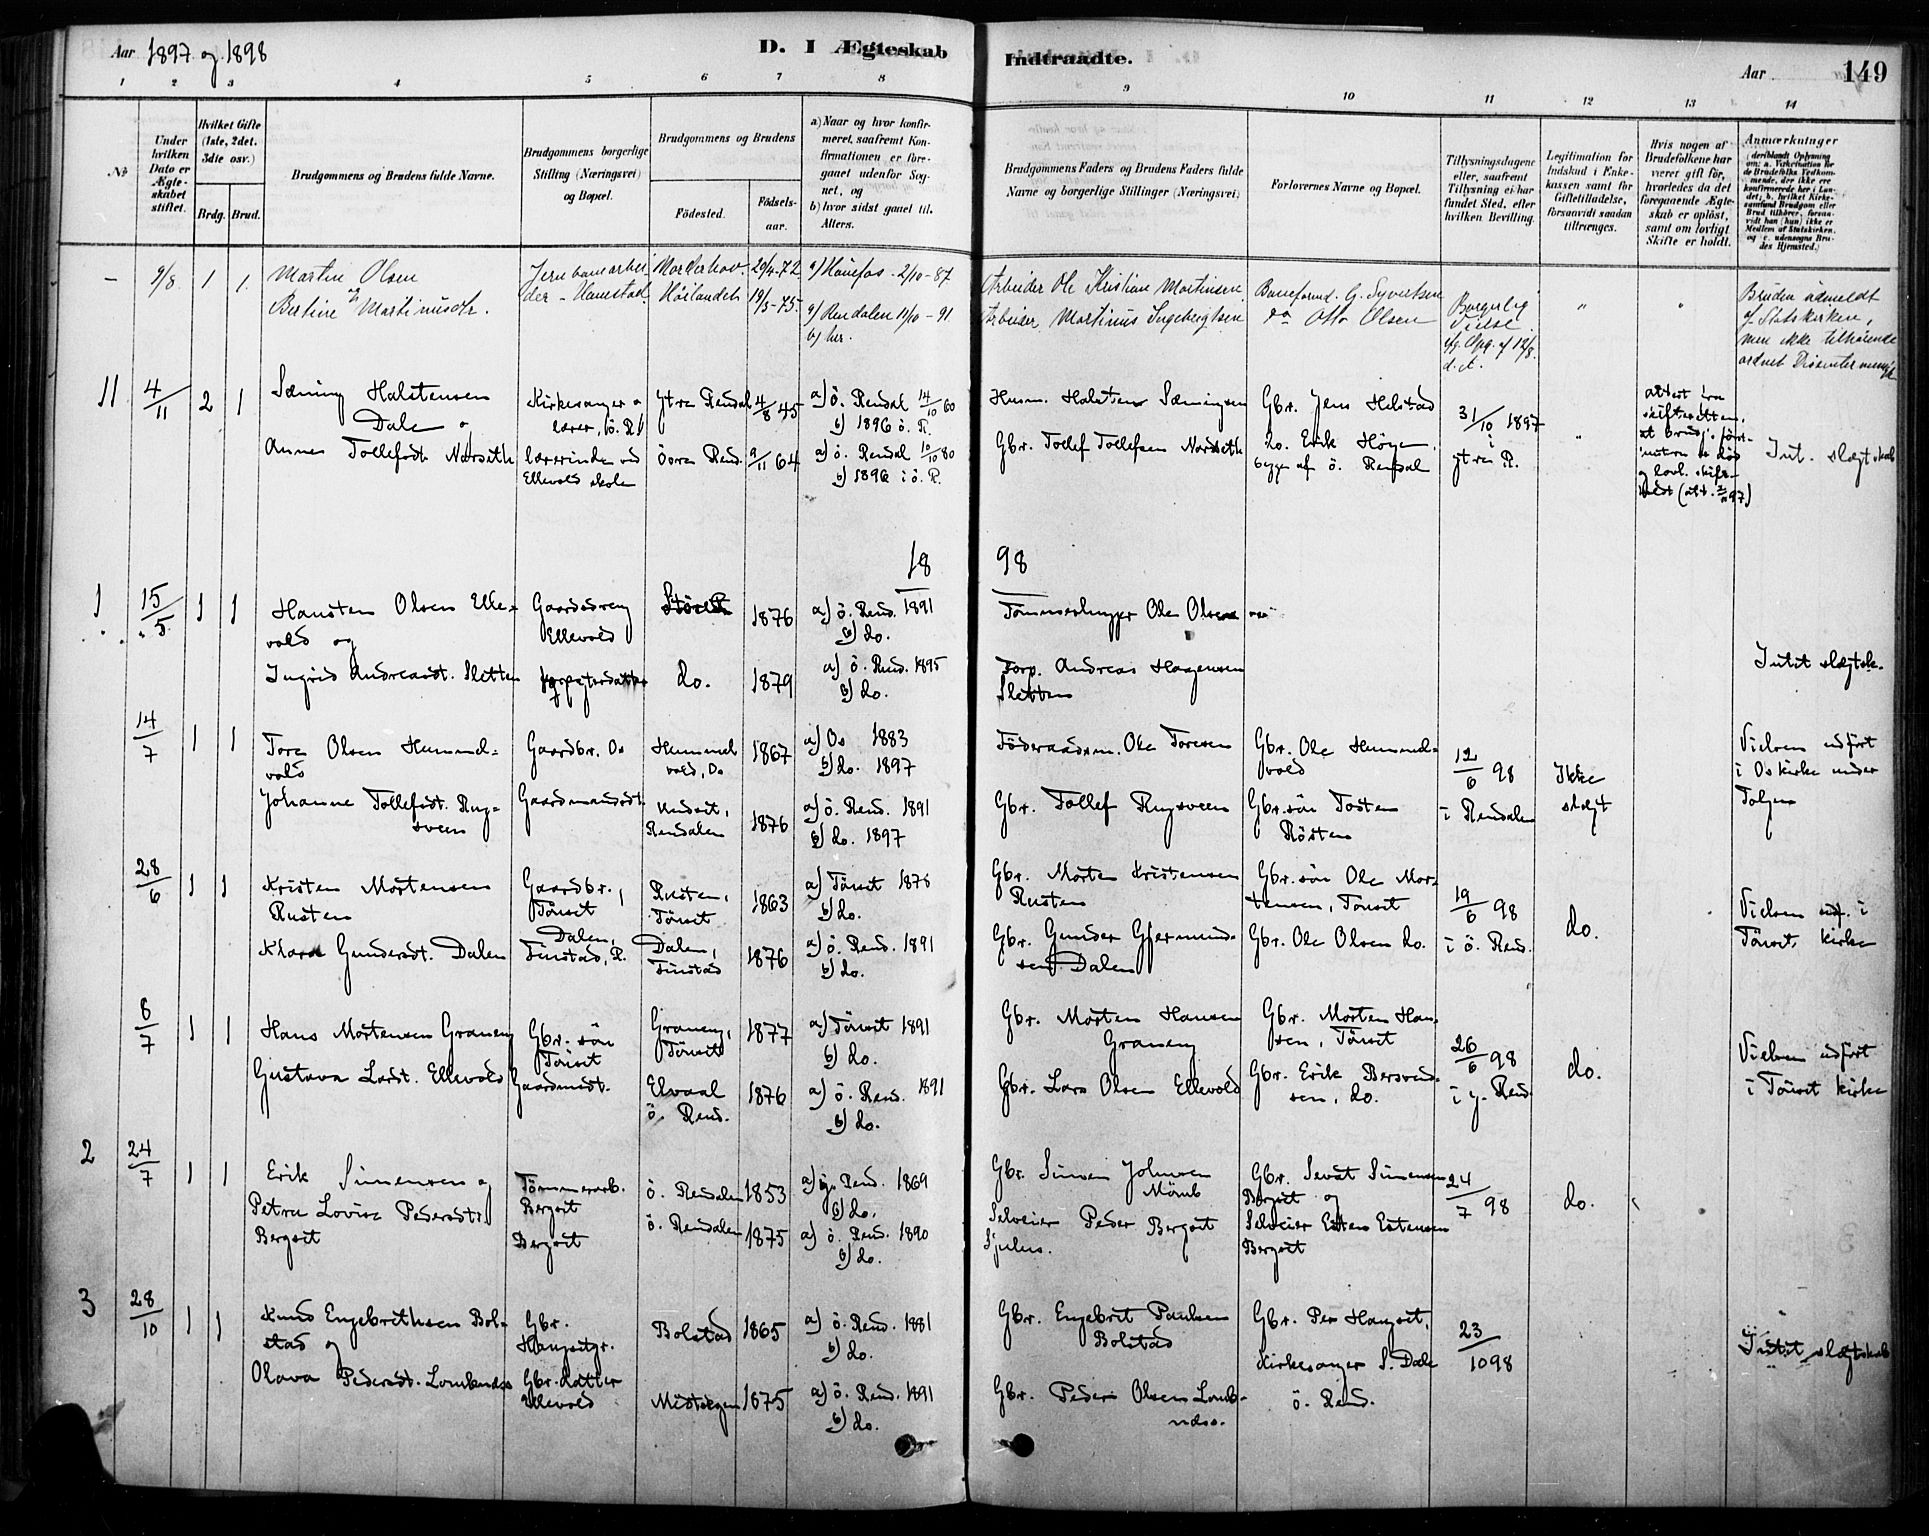 Aar 1897 og 1898
D. I Ægteskab
Indtraadte.
Aar
149
1 2 3 4 5 6 7 8 9 10 11 12 13 14
No
Under hvilken Dato er Ægteskabet stiftet.
Hvilket Gifte (1ste, 2det, 3die osv.)
Brdg. Brud.
Brudgommens og Brudens fulde Navne.
Brudgommens borgerlige Stilling (Næringsvei) og Bopæl.
Brudgommens og Brudens
Fødested. Fødselsaar.
a) Naar og hvor konfirmeret, saafremt Konfirmationen er foregaaet udenfor Sognet, og
b) hvor sidst gaaet til Alters.
Brudgommens Faders og Brudens Faders fulde Navne og borgerlige Stillinger (Næringsvei)
Forlovernes Navne og Bopæl.
Tillysningsdagene eller, saafremt Tillysning ei har fundet Sted, efter hvilken Bevilling.
Legitimation for Indskud i Enkekassen samt for Giftetilladelse, forsaavidt saadan tiltrænges.
Hvis nogen af Brudefolkene har været gift før, hvorledes da det foregaaende Ægteskab er opløst, samt om lovligt Skifte er holdt.
Anmærkninger
- 9/8 1 1 Martin Olsen og Jernbanearbeider - Hanestad 20/4-72 a) Hønefos - 2/10-87 Arbeider Ole Kristian Martinsen Baneformd. G. Syvertsen Borgerlig Vielse
Bertine Martinusdtr. 19/5-75 a) Rendalen 11/10-91 b) her. Arbeider Martinus Ingebrigtsen do Otto Olsen Bruden udmeldt af Statskirken, men ikke tilhørende ordnet Dissentermenigh.
11 4/11 2 1 Sæming Halstensen Dale og Kirkesanger o lærer, ö. R. Ytre Rendal 4/8 45 a) ö. Rendal 14/10 60 b) 1896 ö. R. Husm. Halsten Sæmingsen Gbr. Jens Helstad 31/10 1897 i ytre R.
Anne Tollefsdt. Nordseth lærerinde ved Ellevold skole öore Rend. 9/11 64 a) ö. Rendal 10/10 80 b) 1896 i ö. R. Gbr. Tollef Tollefsen Nordseth do. Erik Höye begge af ö. Rendal Int. slægtskab
18 98
1 15/5 1 1 Hansten Olsen Ellevold og Gaardsdreng Ellevold 1876 a) ö. Rend. 1891 b) do. Tömmerhugger Ole Olsen
Ingrid Andreasdt. Sletten do. 1879 a) ö. Rend. 1895 b) do. Torp. Andreas Haagensen Sletten Intit slægtsk.
14/7 1 1 Tore Olsen Hummelvold Gaardbr. Os Hummelvold, Os 1867 a) Os 1883 b) do. 1897 Föderaadsm. Ole Toresen Gbr. Ole Hummelvold 12/6 98 i Rendalen Ikke slægt Vielsen udført i Os kirke under Tolgen
Johanne Tollefsdt. Rugsveen Gaardmandsdt. Undset, Rendalen 1876 a) ö. Rend. 1891 b) do. 1897 Gbr. Tollef Rugsveen Gbr.sön Tosten Rösten
28/6 1 1 Kristen Mortensen Rusten Gaardbr., Tönset Rusten, Tönset 1863 a) Tönset 1878 b) do. Gbr. Morten Kristensen Rusten Gbr.sön Ole Mortensen, Tönset 19/6 98 i ö. Rend. do. Vielsen udf. i Tönset kirke
Klara Gundersdt. Dalen Dalen, Finstad, R. Dalen, Finstad 1876 a) ö. Rend. 1891 b) do. Gbr. Gunder Gjermundsen Dalen Gbr. Ole Olsen do.
6/7 1 1 Hans Mortensen Graneng Gbr. sön Tönset Graneng, Tönset 1877 a) Tönset 1891 b) do. Gbr. Morten Hansen Graneng Gbr. Morten Hansen, Tönset 26/6 98 i y. Rend. do. Vielsen udfört i Tönset kirke
Gustava Larsdt. Ellevold Gaardmdt. Elvaal ö. Rend. 1876 a) ö. Rend. 1891 b) do. Gbr. Lars Olsen Ellevold Gbr. Erik Bersvendsen, do.
2 24/7 1 1 Erik Simensen og Tömmerarb. Bergset ö. Rendalen 1853 a) y. Rend. 1869 b) do. Gbr. Simen Johnsen Gbr. Sevat Simensen Bergset og 24/7 98 do.
Petra Lovise Pedersdt. Bergset Bergset ö. Rendalen 1875 a) ö. Rend. 1890 b) do. Selveier Peder Bergset Selveier Esten Estensen Bergset
3 28/10 1 1 Knud Engebrethsen Bolstad og Gbr. Bolstad 1865 a) ö. Rend. 1881 b) do. Gbr. Engebret Paulsen Bolstad Gbr. Per Hangset, 23/10 98 Intit slægtskab
Olava Pedersdt. Lombnæs Gbr. datter Ellevold 1875 a) ö. Rend. 1891 b) do. Gbr. Peder Olsen Lombnæs. Kirkesanger S. Dale ö. Rend.